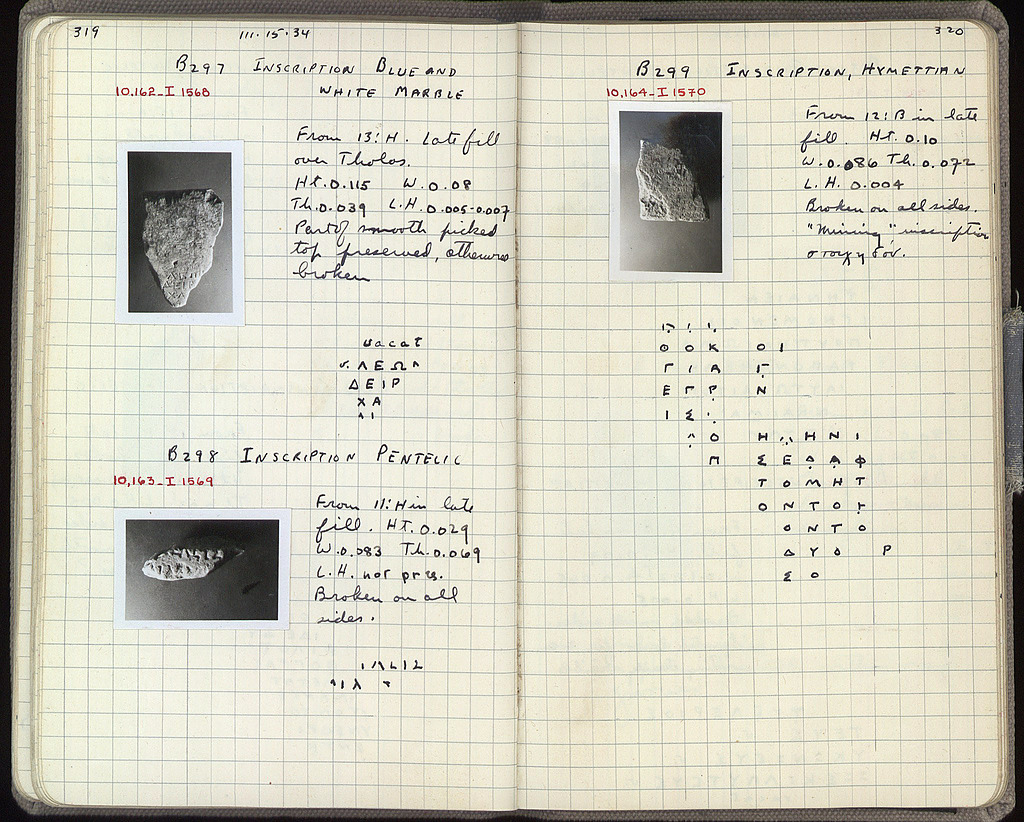 319
111·15·34
B297 INSCRIPTION BLUE AND
WHITE MARBLE
10,162-I 1568
From 13:H. Late fill
over Tholos.
Ht. 0.115 W. 0.08
Th. 0.039 L.H. 0.005-0.007
Part of smooth picked
top preserved, otherwise
broken
vacat
ΛΕΩ
ΔΕΙΡ
ΧΑ
B298 INSCRIPTION PENTELIC
10,163-I 1569
From 11:H in late
fill. Ht. 0.029
W. 0.083 Th. 0.069
L.H. not pres.
Broken on all
sides.
320
B299 INSCRIPTION, HYMETTIAN
10,164-I 1570
From 12:B in late
fill. Ht. 0.10
W. 0.086 Th. 0.072
L.H. 0.004
Broken on all sides.
"Mining" inscription
στοιχηδόν.
Ο Ο Κ Ο Ι
Γ Ι Α Γ
Ε Γ Ρ Ν
Ι Σ
Ο Η Η Ν Ι
Π Σ Ε Δ Α Φ
Τ Ο Μ Η Τ
Ο Ν Τ Ο
Ο Ν Τ Ο
Δ Υ Ο Ρ
Σ Ο